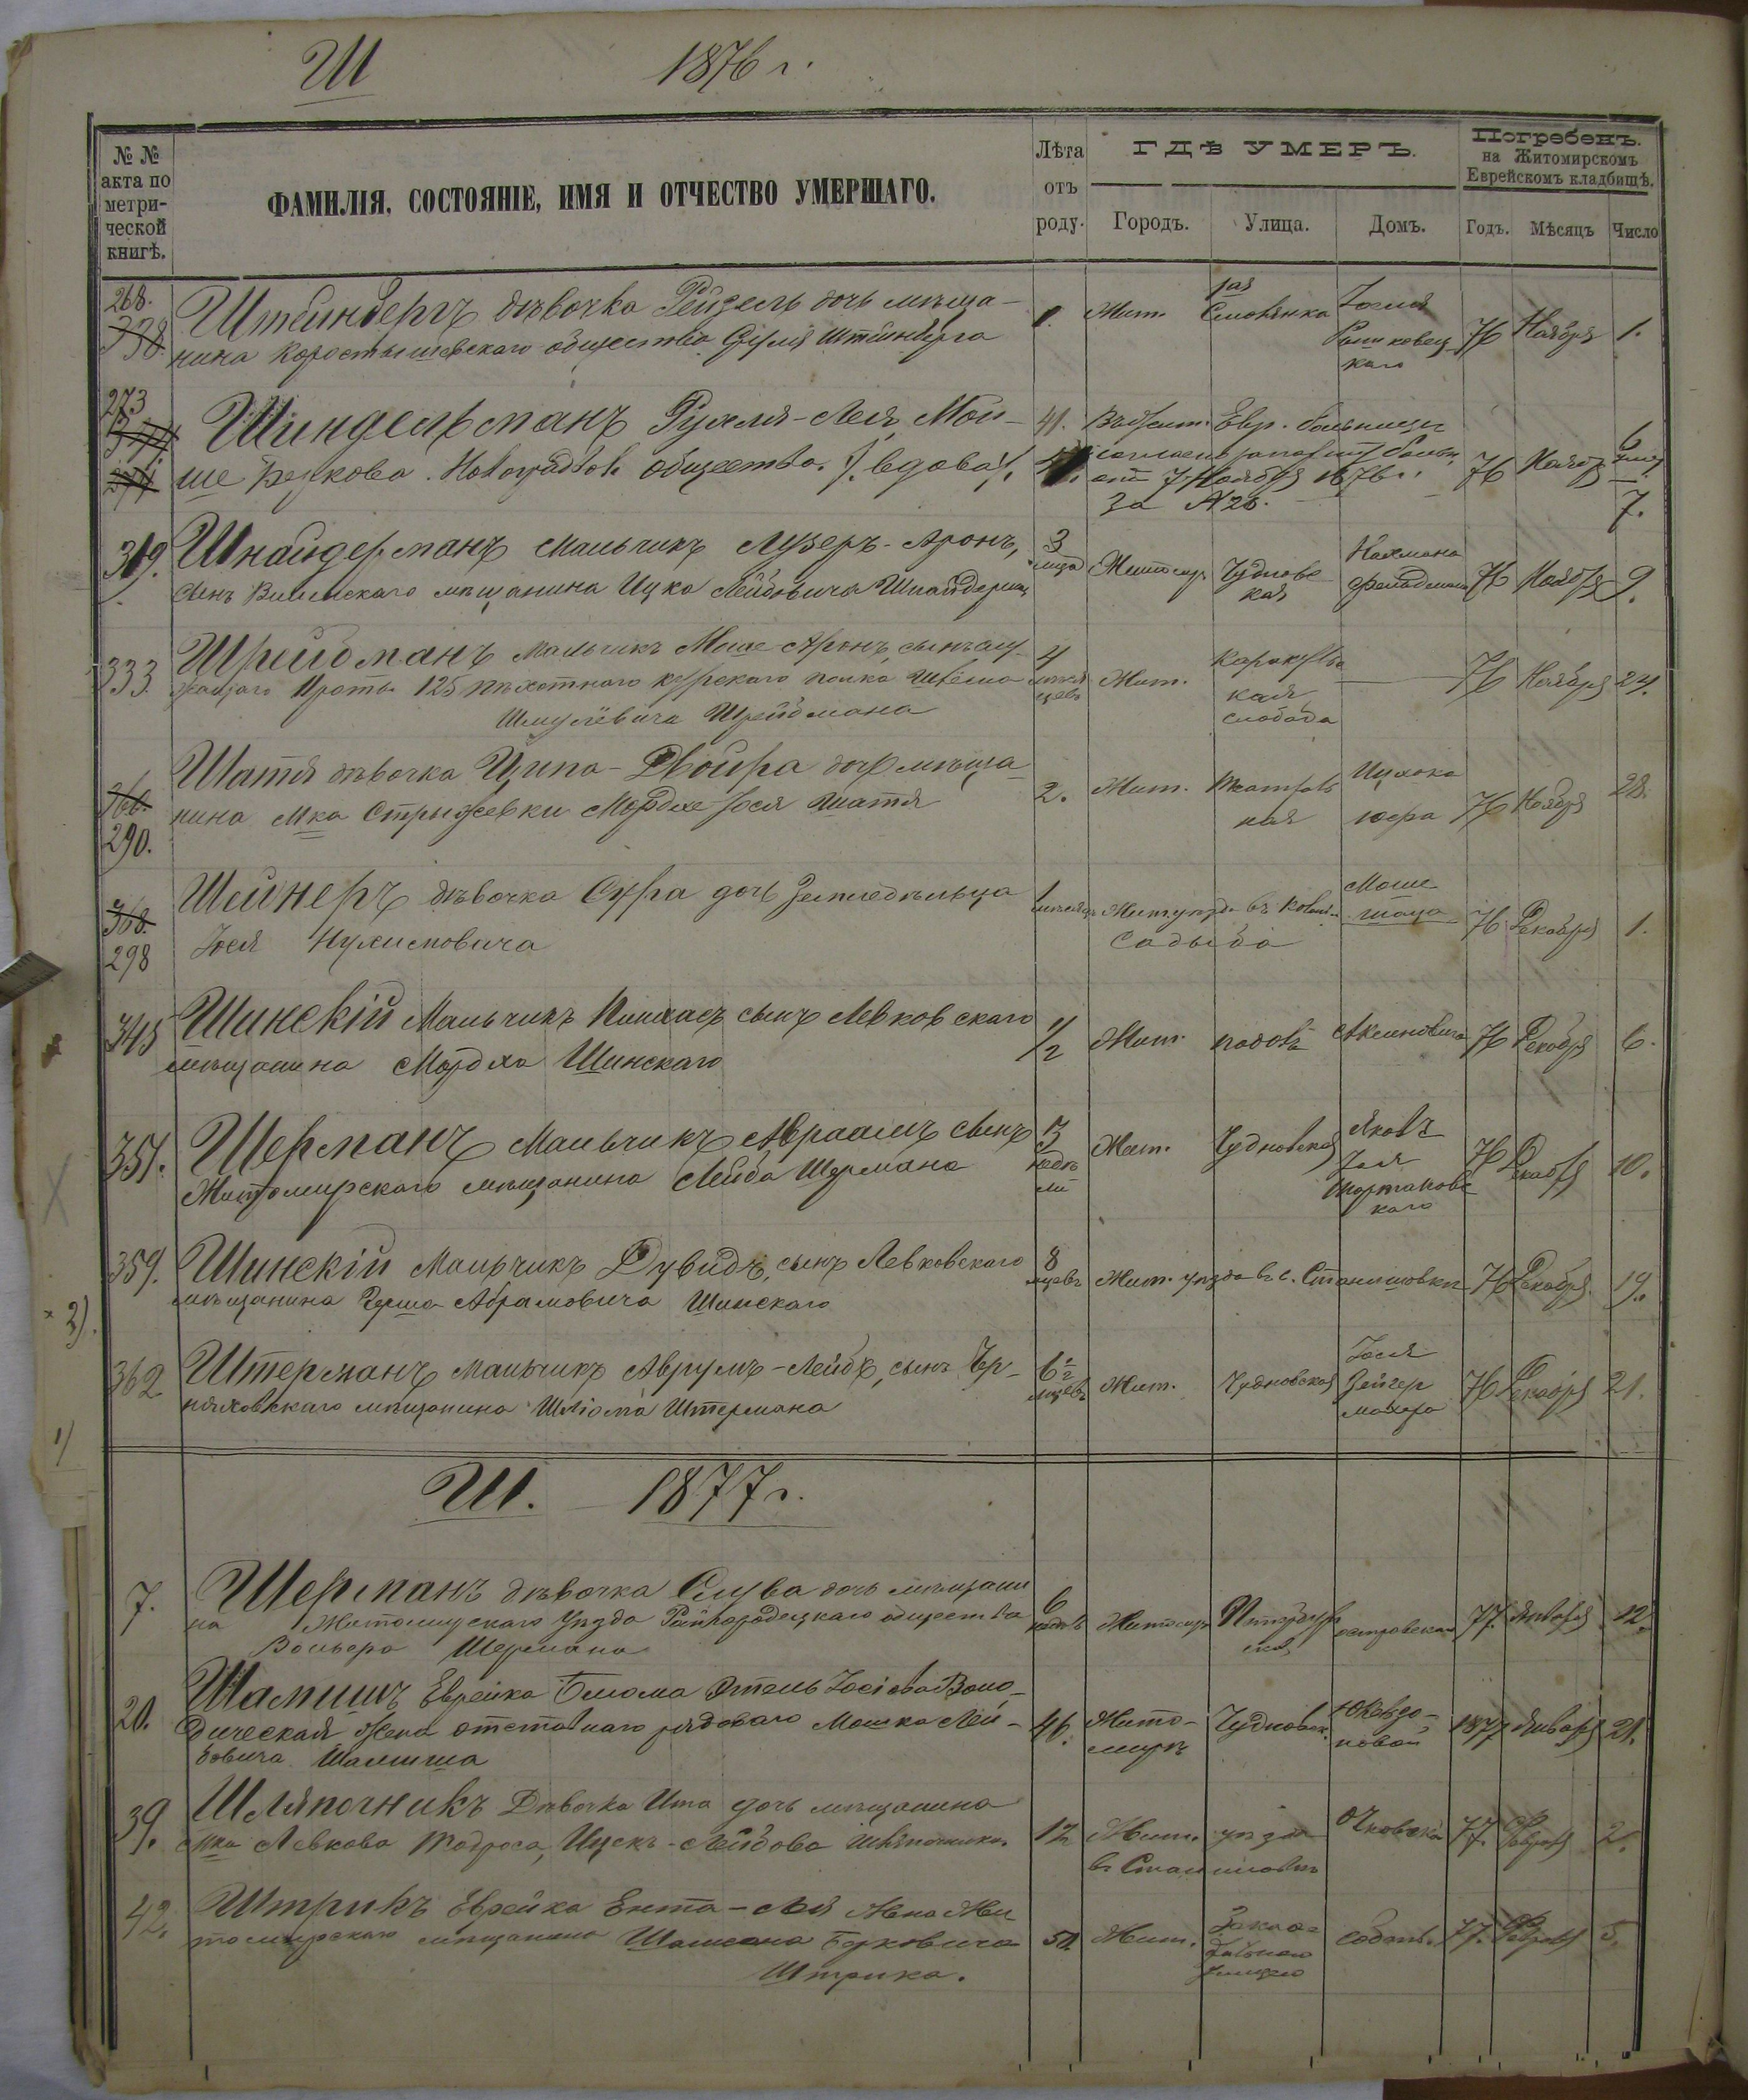 Ш 1876 г.
№ № акта по метри-ческой книгѣ.
ФАМИЛІЯ, СОСТОЯНІЕ, ИМЯ И ОТЧЕСТВО УМЕРШАГО.
Лѣта отъ роду.
ГДѢ УМЕРЪ.
Городъ. Улица. Домъ.
Погребенъ.
на Житомирскомъ
Еврейскомъ кладбищѣ.
Годъ. Мѣсяцъ Число
268. Штейнбергъ дѣвочка Рейзель дочь мѣща-
338. нина Коростышевскаго общества Сруля Штейнберга
1. Жит. Словянка Іоселя 76 Ноября 1.
273 Шиндельманъ Рухля-Лея Мой-
ше Беркова. Новоградвол. общества. /. вдова /.
41. Въ Жит. Евр. больницы
от 7 Ноября 1876 г. 76 Ноябр 6
за № 26. 7.
319. Шнайдерманъ мальчикъ Лузеръ-Аронъ,
сынъ Виленскаго мѣщанина Ицко Лейбовича Шнайдерман
3 мца Житомир Чудновс-кая Нахмана 76 Ноября 9.
333. Шрейбманъ мальчикъ Моше Аронъ, сынъ слу-
125 пѣхотнаго курскаго полка
Шмулевича Шрейбмана
4 мѣсяцевъ Жит. слобода 76 Ноября 24.
366. Шатя дѣвочка Ципа-Двойра дочь мѣща-
290. нина Мка Стрыжевки Мордхе Іося Шатя
2. Жит. Театраль-ная Ицхока юера 76 Ноября 28.
368. Шейнеръ дѣвочка Сура дочь земледѣльца
298 Іося Нухимовича
1 мѣсяцъ Жит. уѣзда въ Моше 76 Декабря 1.
345 Шинскій Мальчикъ Пинхасъ сынъ Левковскаго
мѣщанина Мордха Шинскаго
1/2 Жит. Аксиновича 76 Декабря 6.
351. Шерманъ Мальчикъ Авраамъ сынъ
Житомирскаго мѣщанина Лейба Шермана
3 Жит. Чудновская Яковъ 76 Декабря 10.
359. Шинскій Мальчикъ Дувидъ, сынъ Левковскаго
мѣщанина Герша Абрамовича Шинскаго
8 мцевъ Жит. уѣзда въ с. Станишовкѣ 76 Декабря 19.
362 Штерманъ мальчикъ Аврумъ-Лейбъ, сынъ Чер-
няховскаго мѣщанина Шліома Штермана
6 мцевъ Жит. Чудновская Іоселя Зейгер махера 76 Декабря 21.
Ш. 1877 г.
7. Шерманъ дѣвочка Слува дочь мѣщани
на Житомирскаго Уѣзда Райгородецкаго общества
Вольера Шермана
6 Житомир Островская 77. Января 12.
20. Шамишъ Еврейка Блюма Этель Іосіова
жена отставнаго рядоваго Мошка Лей-
бовича Шамиша
46. Жито-миръ Чудновск. 1877 Января 21.
39. Шляпочникъ Дѣвочка Ита дочь мѣщанина
Мка Левкова Тодроса, Ицекъ-Лейбова Шляпочника.
12 Жит. уѣзда
въ Станишовкѣ 77. Февраля 2.
42. Штрикъ Еврейка Ента-Лея жена Жи
томирскаго мѣщанина Шамсона Берковича
Штрика.
50. Жит. собств. 77. Февраля 5.